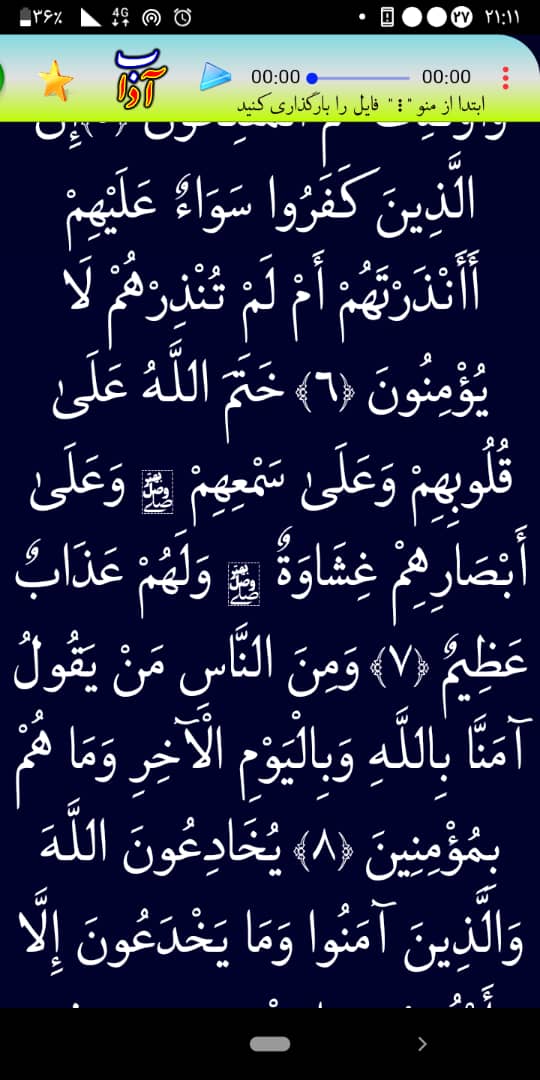 ۳۶٪ 4G ۲۷ ۲۱:۱۱
آداب
00:00 00:00
ابتدا از منو "⋮" فایل را بارگذاری کنید
الَّذِينَ كَفَرُوا سَوَاءٌ عَلَيْهِمْ
أَأَنْذَرْتَهُمْ أَمْ لَمْ تُنْذِرْهُمْ لَا
يُؤْمِنُونَ ﴿٦﴾ خَتَمَ اللَّهُ عَلَىٰ
قُلُوبِهِمْ وَعَلَىٰ سَمْعِهِمْ ۖ وَعَلَىٰ
أَبْصَارِهِمْ غِشَاوَةٌ ۖ وَلَهُمْ عَذَابٌ
عَظِيمٌ ﴿٧﴾ وَمِنَ النَّاسِ مَنْ يَقُولُ
آمَنَّا بِاللَّهِ وَبِالْيَوْمِ الْآخِرِ وَمَا هُمْ
بِمُؤْمِنِينَ ﴿٨﴾ يُخَادِعُونَ اللَّهَ
وَالَّذِينَ آمَنُوا وَمَا يَخْدَعُونَ إِلَّا